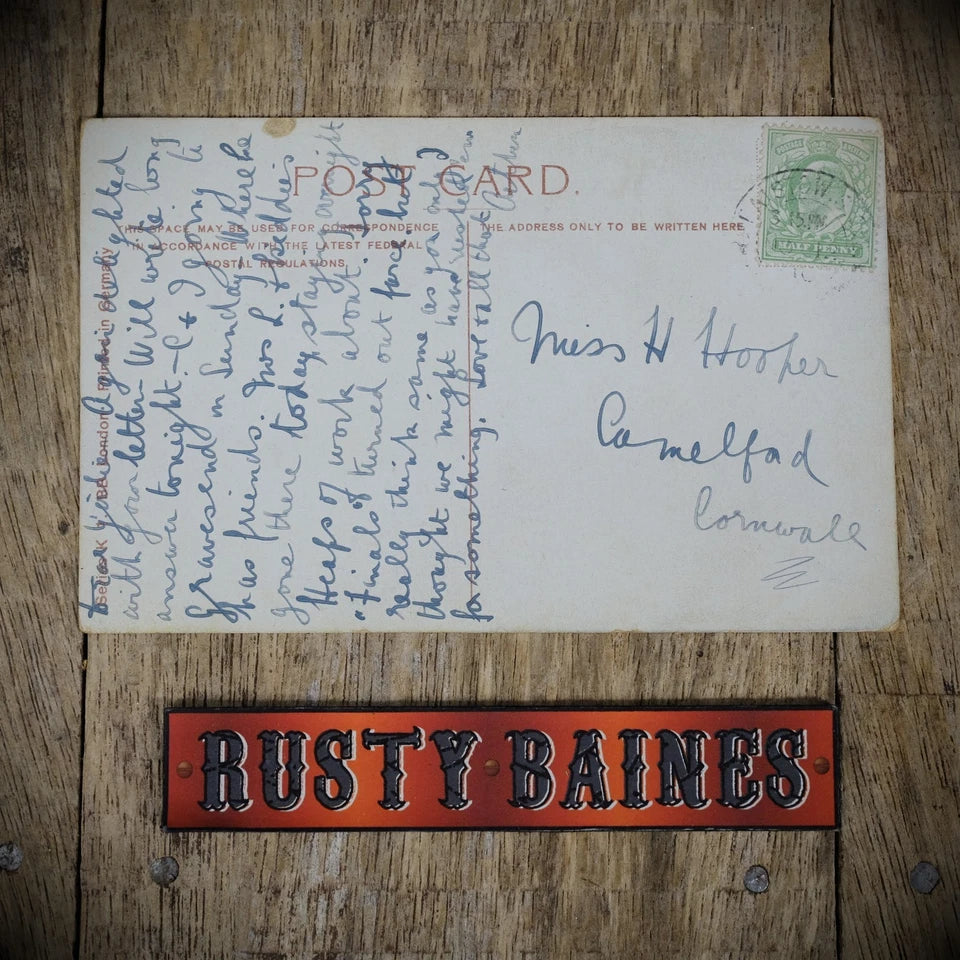 POST CARD.
THIS SPACE MAY BE USED FOR CORRESPONDENCE
IN ACCORDANCE WITH THE LATEST FEDERAL
POSTAL REGULATIONS.
THE ADDRESS ONLY TO BE WRITTEN HERE
HALF PENNY
Miss H Hooper
Camelford
Cornwall
delighted
with your letter - Will write long
answer tonight. - C & I going to
Gravesend on Sunday where he
has friends. Mrs L. &
gone there today, stay overnight
Heaps of work about. Sorry
"Finals" turned out farce but
really think same as you and I
thought we might hand
for something. Love & all that
Printed in Germany
RUSTY BAINES